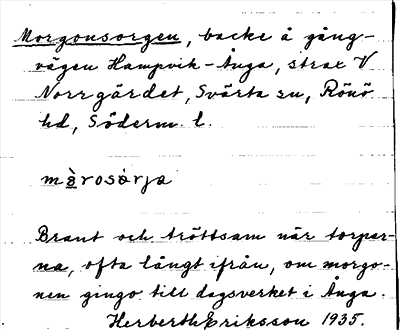 Morgonsorgen, backe å gång-
vägen Hampvik-Ånga, strax V
Norrgärdet, Svärta sn, Rönö
hd, Söderm. l.
mà̱rosȧrja
Brant och tröttsam när torpar-
na, ofta långt ifrån, om morgo-
nen gingo till dagsverket i Ånga.
Herberth Eriksson 1935.